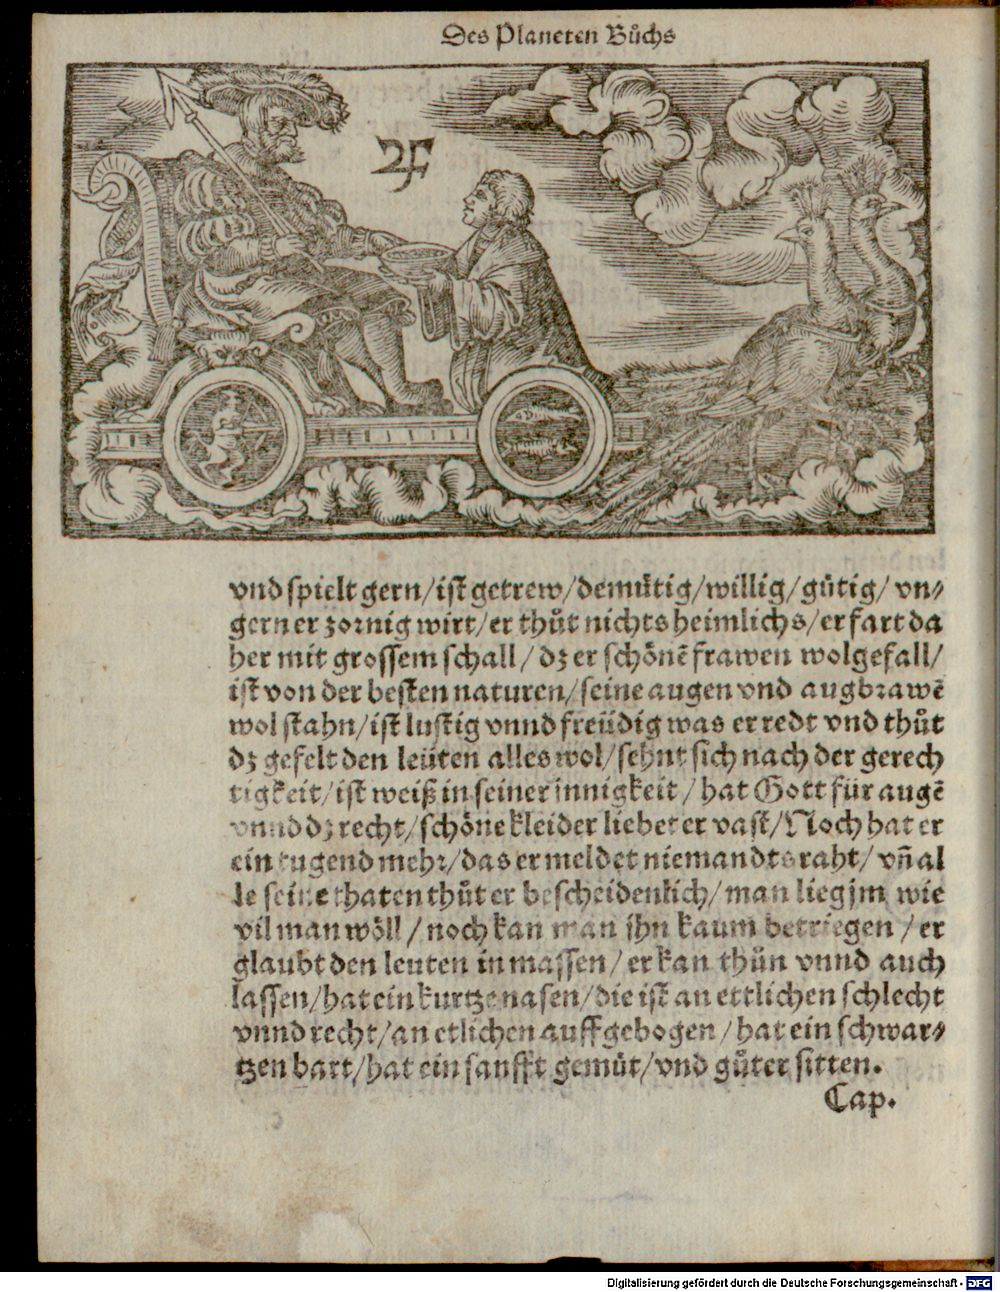 Des Planeten Bůchs
♃
vnd spielt gern/ist getrew/demütig/willig/gütig/ vn⸗
gern er zornig wirt/er thůt nichts heimlichs/er fart da
her mit grossem schall/ dz er schönē frawen wolgefall/
ist von der besten naturen/seine augen vnd augbrawē
wol stahn/ist lustig vnnd freüdig was er redt vnd thůt
dz gefelt den leüten alles wol/sehnt sich nach der gerech
tigkeit/ist weiß in seiner innigkeit/ hat Gott für augē
vnnd dz recht/schöne kleider liebet er vast/Noch hat er
ein tugend mehr/das er meldet niemandts raht/ vñ al
le seine thaten thůt er bescheidenlich/man lieg jm wie
vil man wöll/ noch kan man ihn kaum betriegen/er
glaubt den leuten in massen/er kan thůn vnnd auch
lassen/hat ein kurtze nasen/die ist an ettlichen schlecht
vnnd recht/an etlichen auffgebogen/hat ein schwar⸗
tzen bart/hat ein sanfft gemůt/vnd gůter sitten.
Cap.
Digitalisierung gefördert durch die Deutsche Forschungsgemeinschaft - DFG